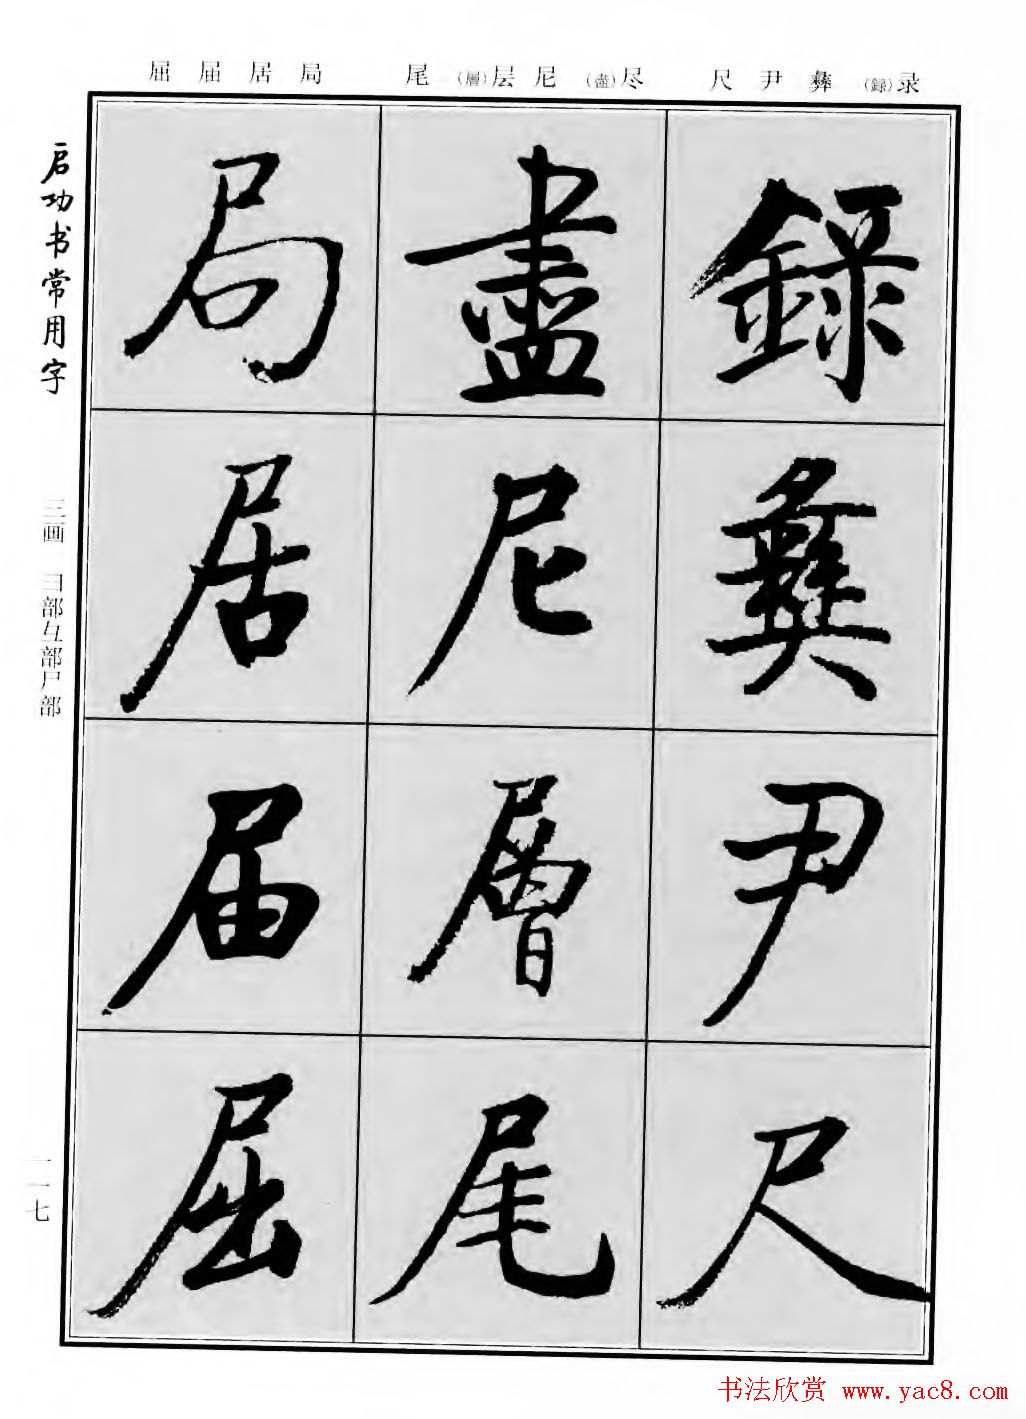 屈届居局 尾(層)层尼(盡)尽 尺尹彝(録)录
録
彝
尹
尺
盡
尼
層
尾
局
居
届
屈
启功书常用字
三画 彐部彑部尸部
一一七
书法欣赏 www.yac8.com